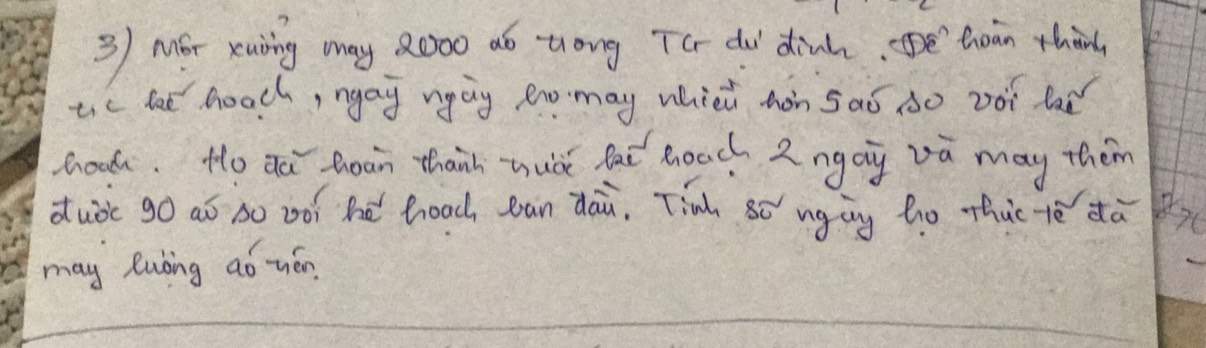 3) Một xưởng may 2000 áo trong TG dự định. Để hoàn thành
trc kế hoạch, ngày ngày họ may nhiều hơn 5 áo so với kế
hoạch. Họ đã hoàn thành trước kế hoạch 2 ngày và may thêm
được 90 áo so với kế hoạch ban đầu. Tính số ngày họ thực tế đã
may lường áo trên.